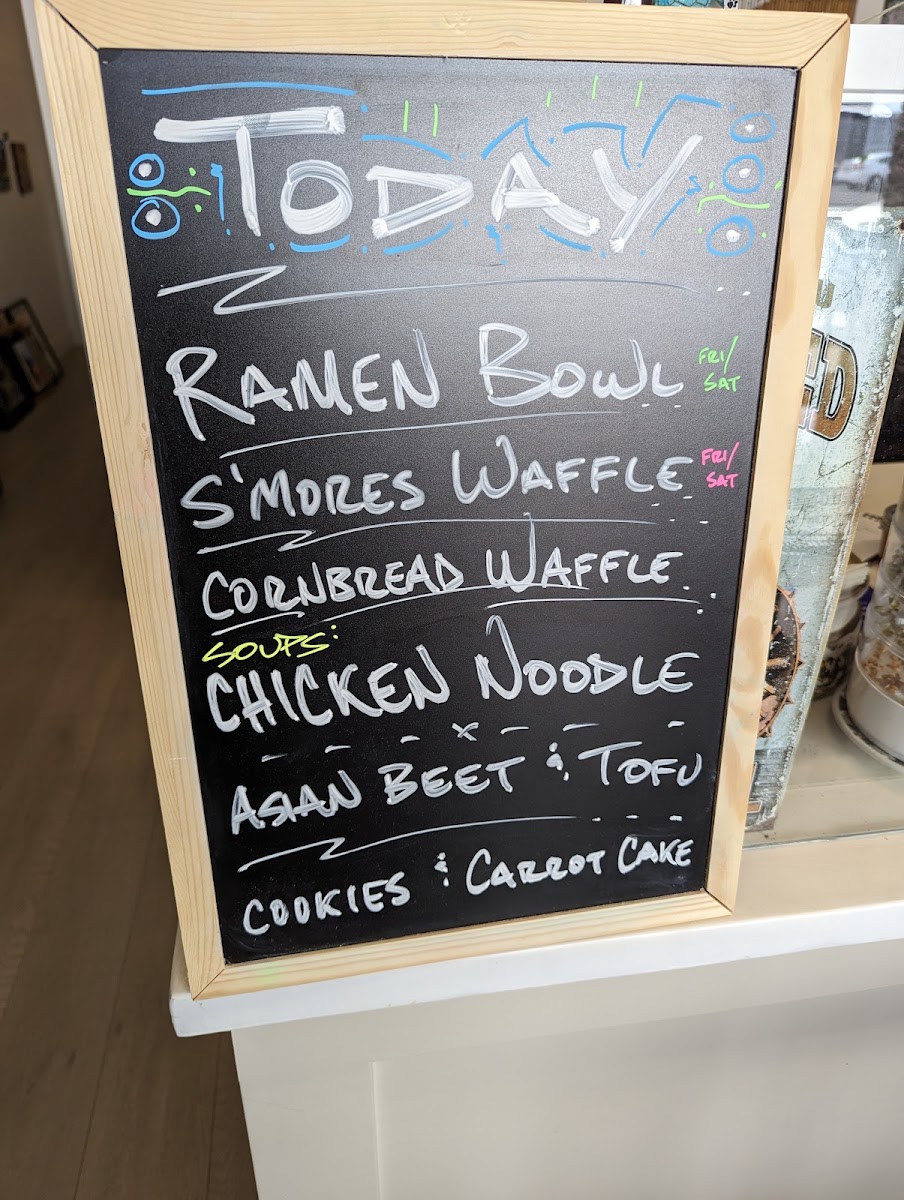 TODAY
RAMEN BOWL FRI/
SAT
S'MORES WAFFLE FRI/
SAT
CORNBREAD WAFFLE
SOUPS:
CHICKEN NOODLE
ASIAN BEET & TOFU
COOKIES & CARROT CAKE